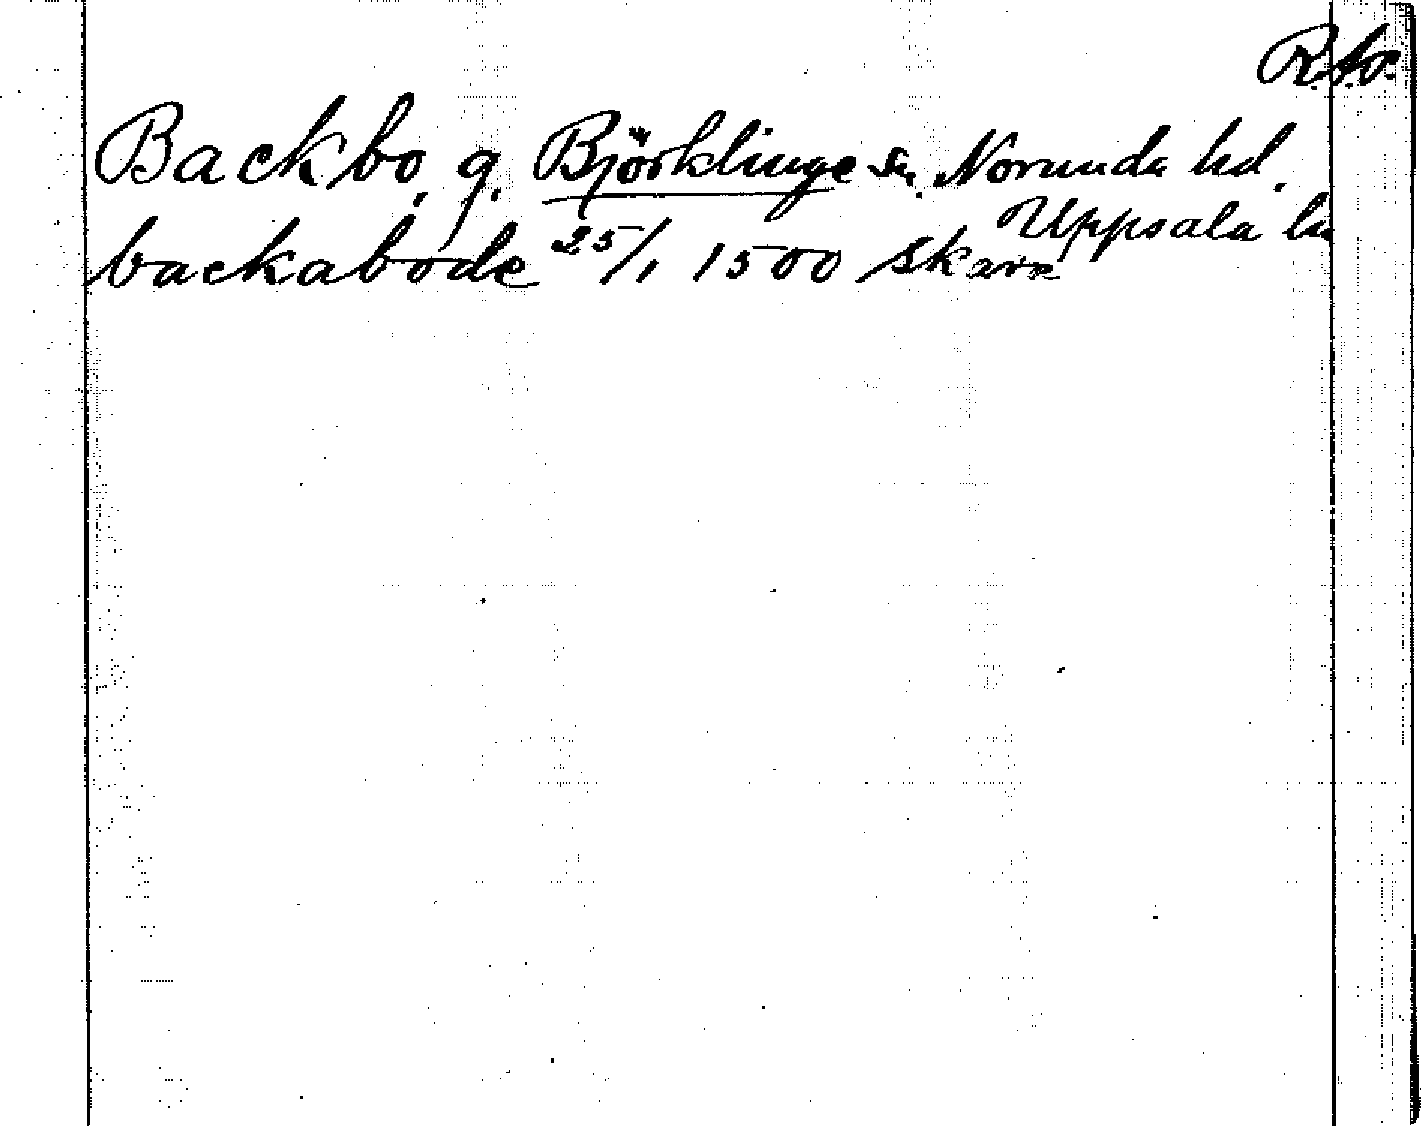 R.Ap.
Backbo, g. Björklinge sn. Norunda hd.
Uppsala ln
backabode 25/1 1500 Skara